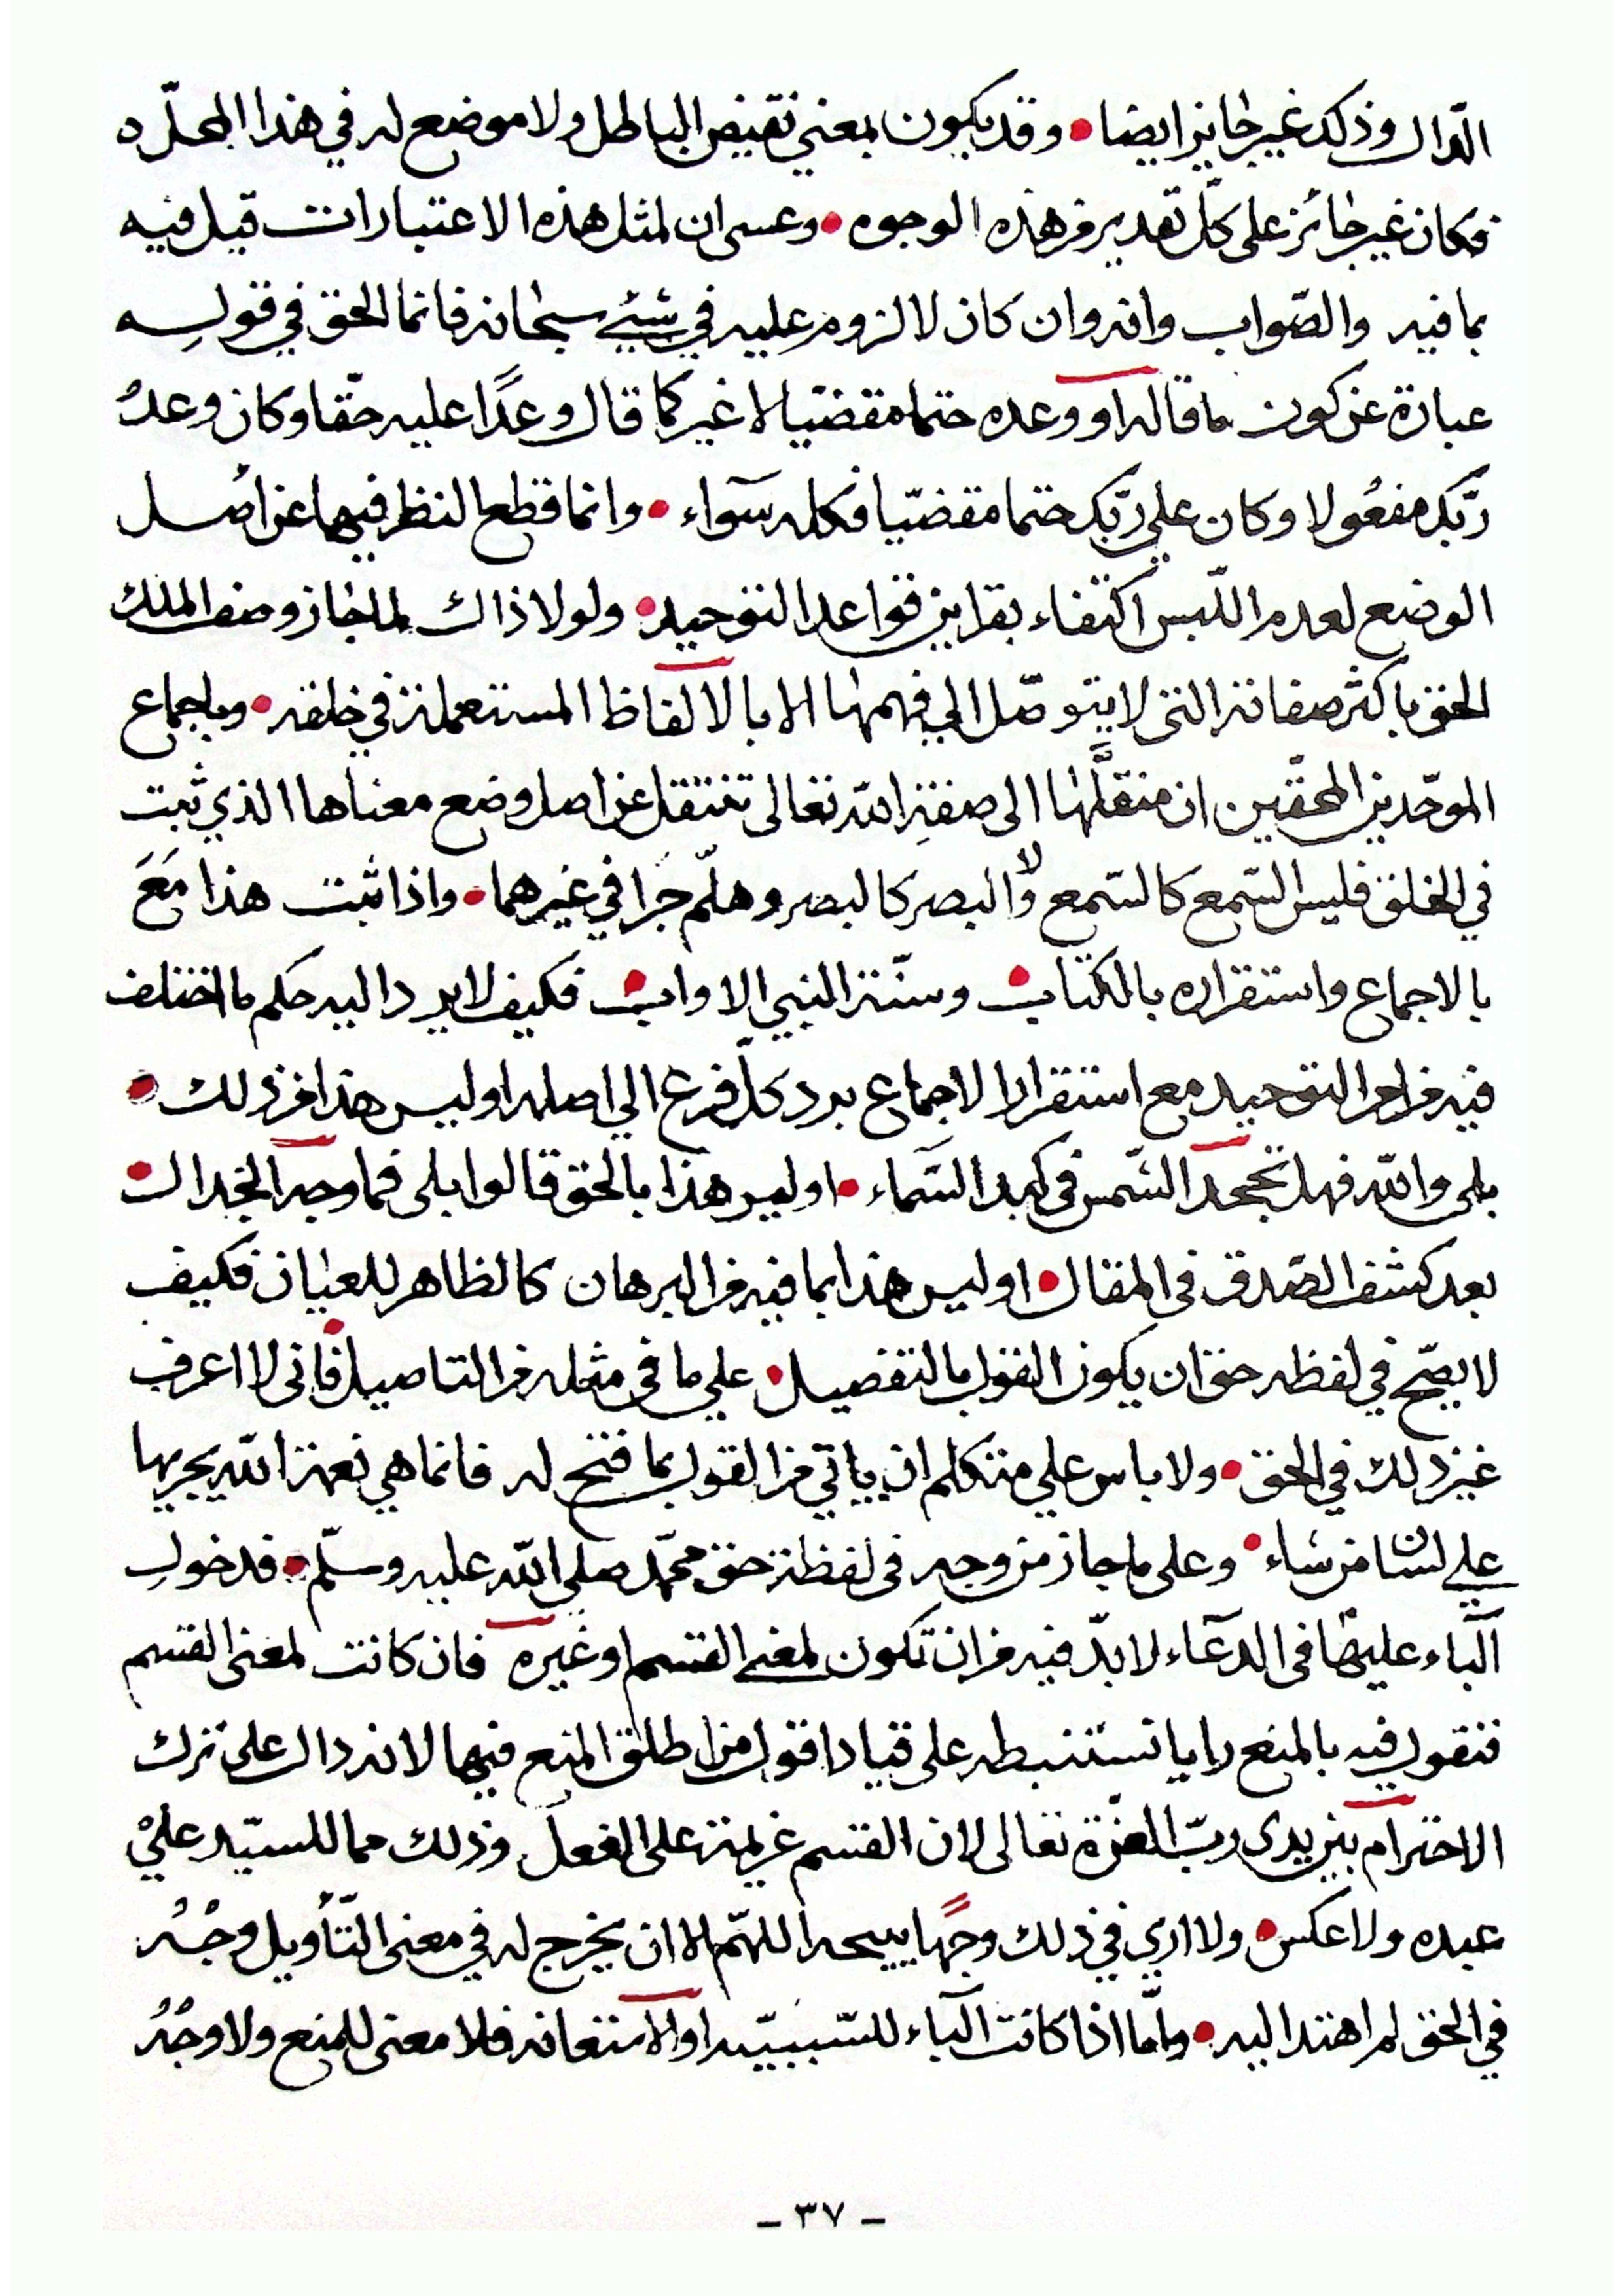 الدّال وذلك غير جايز ايضا • وقد يكون بمعني نقيض الباطل ولا موضع له في هذا المحلّ ه
فكان غير جائز على كلّ تقدير من هذه الوجوه • وعسى ان لمثل هذه الاعتبارات قيل فيه
بما فيه والصّواب وانه وان كان لا لزوم عليه في شيئ سبحانه فانما الحق في قوله
عبارة عن كون ما قاله او وعده حتما مقضيا لا غير كما قال وعدًا عليه حقّا وكان وعدُ
ربّك مفعُولا وكان علي ربّك حتما مقضيّا فكله سوآء • وانما قطع النظر فيهما عن اصُل
الوضع لعدم اللّبس اكتفاء بقراين قواعد التوحيد • ولولا ذاك لما جاز وصف الملك
الحق باكثر صفاته التي لا يتوصّل الي فهمها الا بالالفاظ المستعملة في خلقه • وباجماع
الموحّدين المحقّين ان متنقلَّها الى صفةِ الله تعالى تنتقل عن اصل وضع معناها الذي ثبت
في الخلق فليس السّمع كالسّمع ولا البصر كالبصر وهلّم جرا في غيرهما • واذا ثبت هذا مَعَ
بالاجماع واستقراره بالكتاب • وسنّة النبي الاواب • فكيف لا يرد اليه حكم ما اختلف
فيه من امر التوحيد مع استقرار الاجماع برد كلّ فرع الي اصله اوليس هذا من ذلك •
بلى والله فهل تجحد الشّمس في كبد السّماء • اوليس هذا بالحق قالوا بلى فما وجه الجدال •
بعد كشف الصّدق في المقال • اوليس هذا بما فيه من البرهان كالظاهر للعيان فكيف
لا يصّح في لفظه حق ان يكون القول بالتفصيل • علي ما في مثله من التاصيل • فاني لا اعرف
غير ذلك في الحق • ولا باس علي متكلم ان ياتي من القول بما فتح له فانما هي نعمة الله يجريها
علي لسان من شاء • وعلى ما جاز من وجه في لفظة حق محمّد صلى الله عليه وسلّم • فدخول
البآء عليها في الدعآء لا بدّ فيه من ان تكون لمعني القسم او غيره فان كانت لمعنى القسم
فنقول فيه بالمنع رايا نستنبطه على قياد اقول من اطلق المنع فيهما لانه دال على ترك
الاحترام بين يدى ربّ العزّة تعالى لان القسم عزيمة على الفعل وذلك مما للسيّد عليْ
عبده ولا عكس • ولا ارى في ذلك وجهًا يبيحه اللهّم الا ان يخرج له في معنى التّأويل وجْهُ
في الحق لم اهتد اليه • وامّا اذا كانت البآء للسّببيّه او الاستعانه فلا معنى للمنع ولا وجْهُ
- ٣٧ -